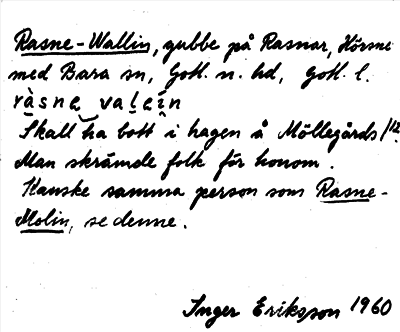 Rasne-Wallin, gubbe på Rasnar, Hörsne
med Bara sn, Gotl. n. hd, Gotl. l.
ràsnę valęin
Skall ha bott i hagen å Möllegårds /12.
Man skrämde folk för honom.
Kanske samma person som Rasne-
Molin, se denne.
Inger Eriksson 1960